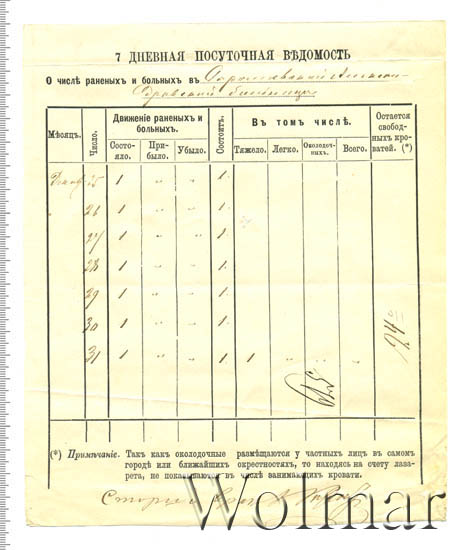 7 ДНЕВНАЯ ПОСУТОЧНАЯ ВѢДОМОСТЬ
О числѣ раненыхъ и больныхъ въ
больницѣ
Мѣсяцъ. Число. Движеніе раненыхъ и больныхъ. Состоитъ. Въ томъ числѣ. Остается свободныхъ кроватей. (*)
Состояло. Прибыло. Убыло. Тяжело. Легко. Околодочныхъ. Всего.
25 1 " " 1
" 26 1 " " 1
27 1 " " 1
28 1 " " 1
29 1 " " 1
30 1 " " 1
31 1 " " 1 1 " "
(*) Примѣчаніе. Такъ какъ околодочные размѣщаются у частныхъ лицъ въ самомъ
городѣ или ближайшихъ окрестностяхъ, то находясь на счету лаза-
рета, не показываются въ числѣ занимающихъ кровати.
Wolmar